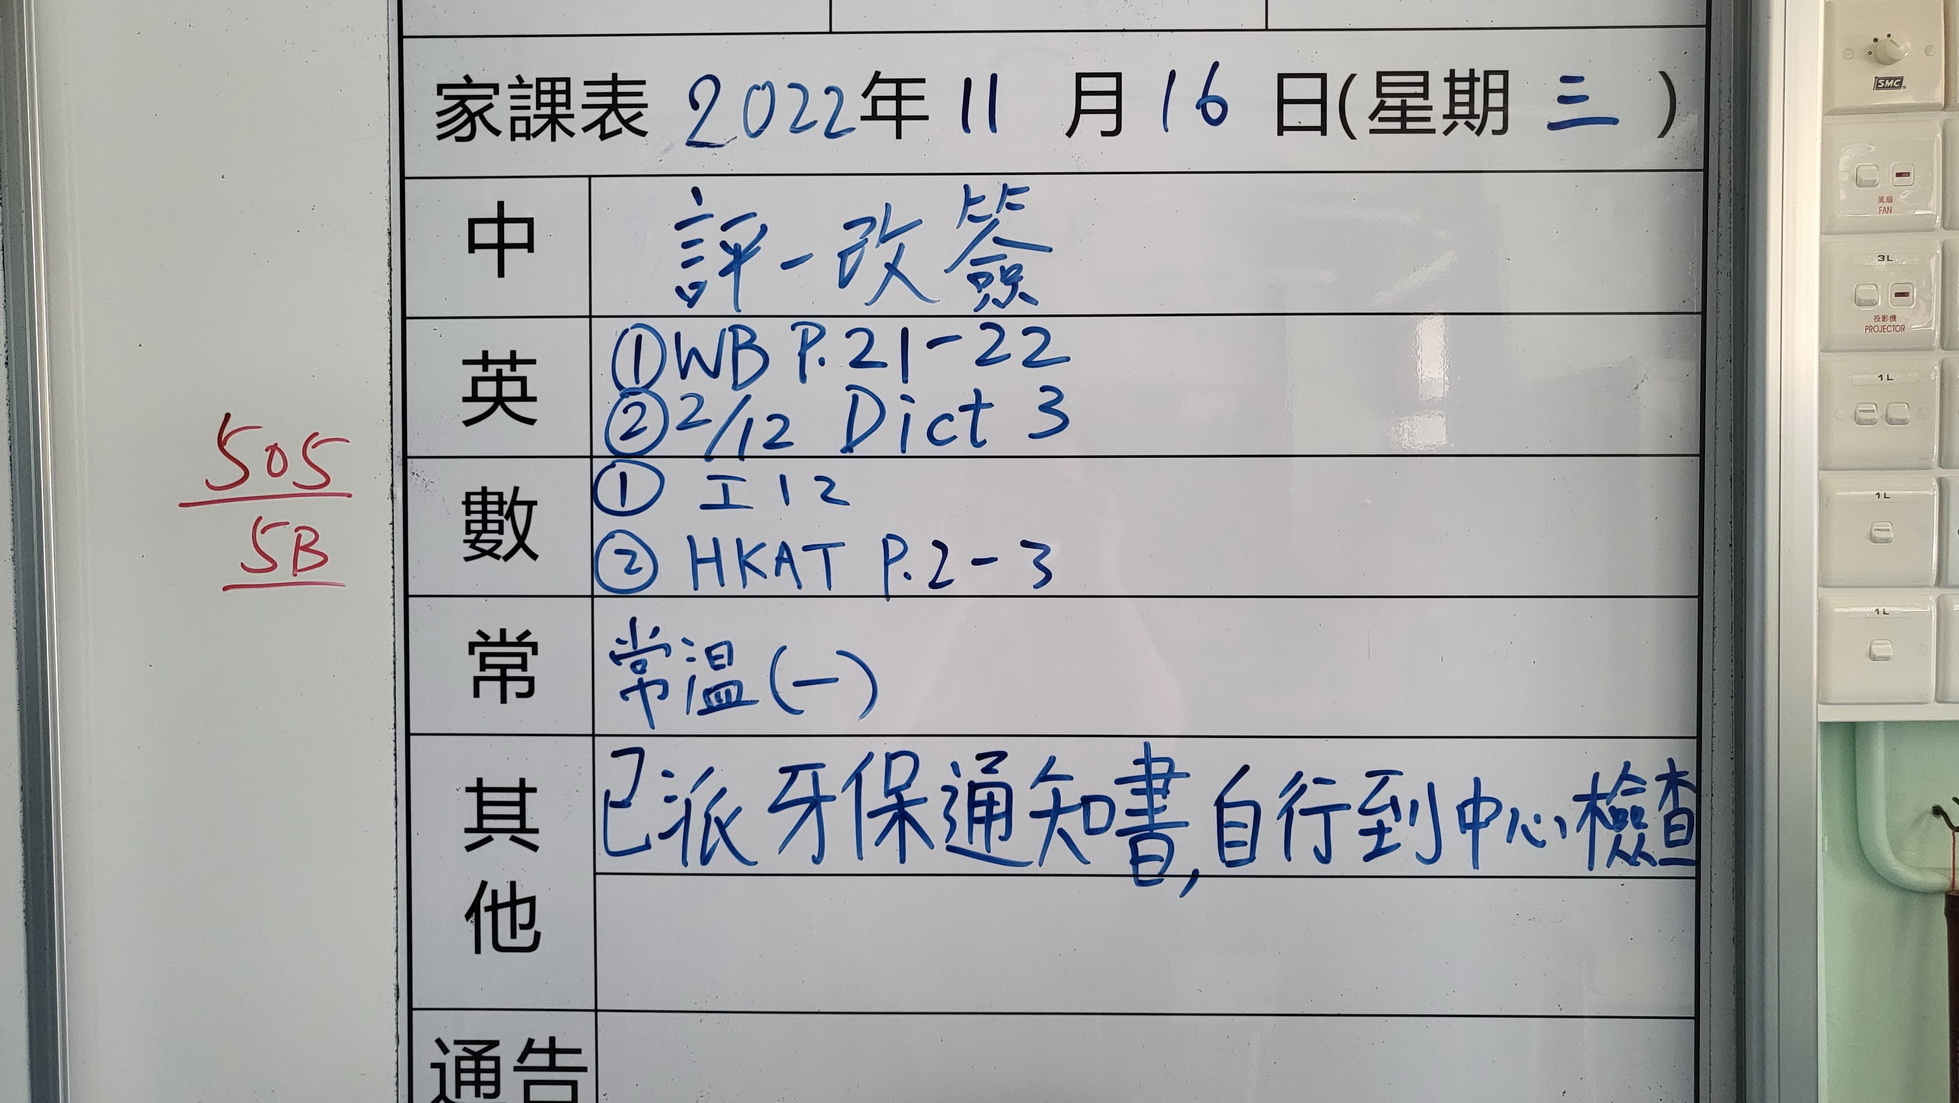 家課表 2022年 11 月 16 日(星期 三 )
中 評一改簽
英 ①WB P.21-22
②2/12 Dict 3
數 ① 工12
② HKAT P.2-3
常 常溫(一)
其他 已派牙保通知書,自行到中心檢查
通告
505
5B
SMC
風扇
FAN
3L
投影機
PROJECTOR
1L
PRESS
1L
PRESS
1L